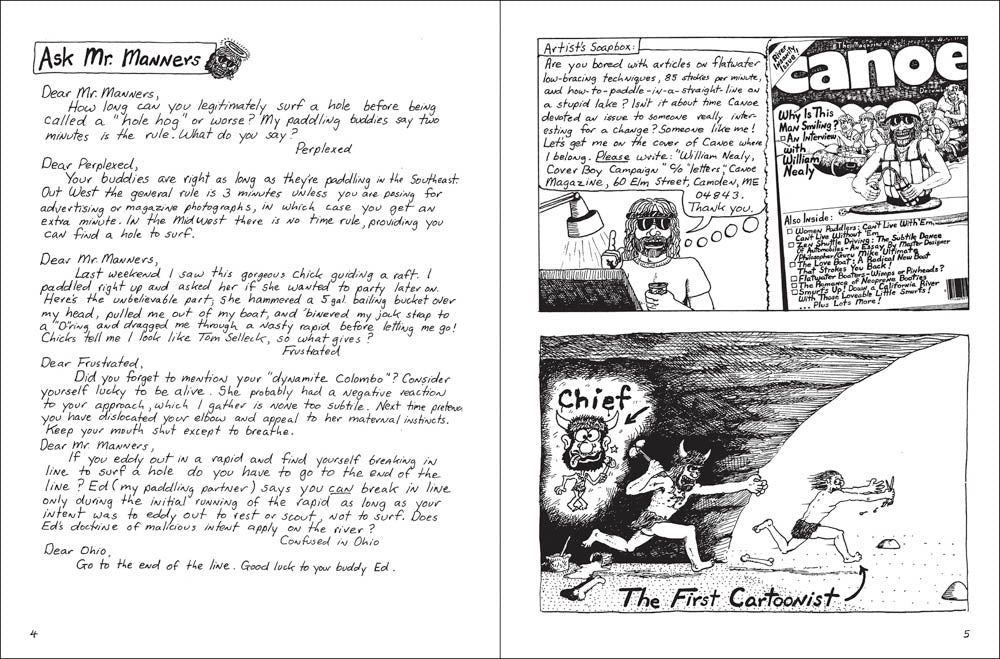 Ask Mr. Manners
Dear Mr. Manners,
How long can you legitimately surf a hole before being
called a "hole hog" or worse? My paddling buddies say two
minutes is the rule. What do you say?
Perplexed
Dear Perplexed,
Your buddies are right as long as they're paddling in the Southeast.
Out West the general rule is 3 minutes unless you are posing for
advertising or magazine photographs, in which case you get an
extra minute. In the Midwest there is no time rule, providing you
can find a hole to surf.
Dear Mr. Manners,
Last weekend I saw this gorgeous chick guiding a raft. I
paddled right up and asked her if she wanted to party later on.
Here's the unbelievable part; she hammered a 5 gal. bailing bucket over
my head, pulled me out of my boat, and 'binered my jock strap to
a "D"ring and dragged me through a nasty rapid before letting me go!
Chicks tell me I look like Tom Selleck, so what gives?
Frustrated
Dear Frustrated,
Did you forget to mention your "dynamite Colombo"? Consider
yourself lucky to be alive. She probably had a negative reaction
to your approach, which I gather is none too subtile. Next time pretend
you have dislocated your elbow and appeal to her maternal instincts.
Keep your mouth shut except to breathe.
Dear Mr. Manners,
If you eddy out in a rapid and find yourself breaking in
line to surf a hole do you have to go to the end of the
line? Ed (my paddling partner) says you can break in line
only during the initial running of the rapid as long as your
intent was to eddy out to rest or scout, not to surf. Does
Ed's doctrine of malicious intent apply on the river?
Confused in Ohio
Dear Ohio,
Go to the end of the line. Good luck to your buddy Ed.
4
Artist's Soapbox:
Are you bored with articles on flatwater
low-bracing techniques, 85 strokes per minute,
and how-to-paddle-in-a-straight-line on
a stupid lake? Isn't it about time Canoe
devoted an issue to someone really inter-
esting for a change? Someone like me!
Let's get me on the cover of Canoe where
I belong. Please write: "William Nealy,
Cover Boy Campaign" c/o "letters", Canoe
Magazine, 60 Elm Street, Camden, ME
04843.
Thank you.
River
Insanity
Issue
The Magazine of Self-Propelled
canoe
Why Is This
Man Smiling?
An Interview
with
William
Nealy
Also Inside:
Women Paddlers: Can't Live With 'Em,
Can't Live Without 'Em
Zen Shuttle Driving: The Subtile Dance
of Automobiles - An Essay By Master Designer
/Philosopher/Guru Mike Ultimate
The Love Boat: A Radical New Boat
That Strokes You Back!
Flatwater Boaters - Wimps or Pinheads?
The Romance of Neoprene Booties
Smurfs Up! Down a California River
With Those Loveable Little Smurfs!
... Plus Lots More!
Chief
The First Cartoonist
5